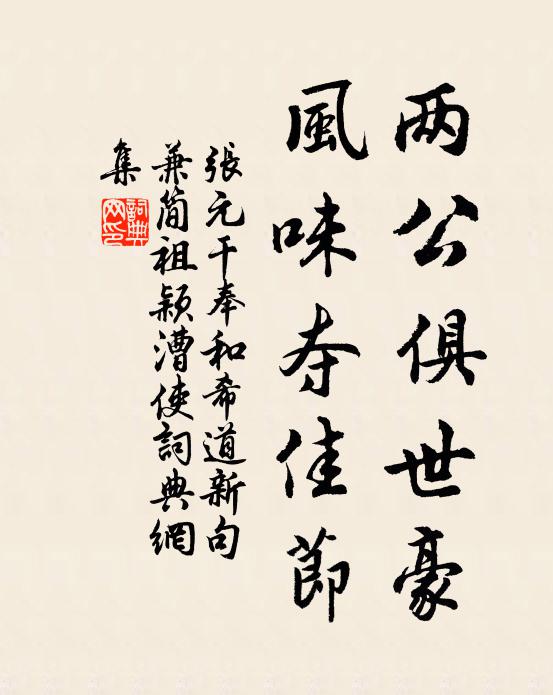 两公俱世豪
風味夺佳節
張元干奉和希道新句
兼简祖颖漕使詞典網
集
詞典
网印